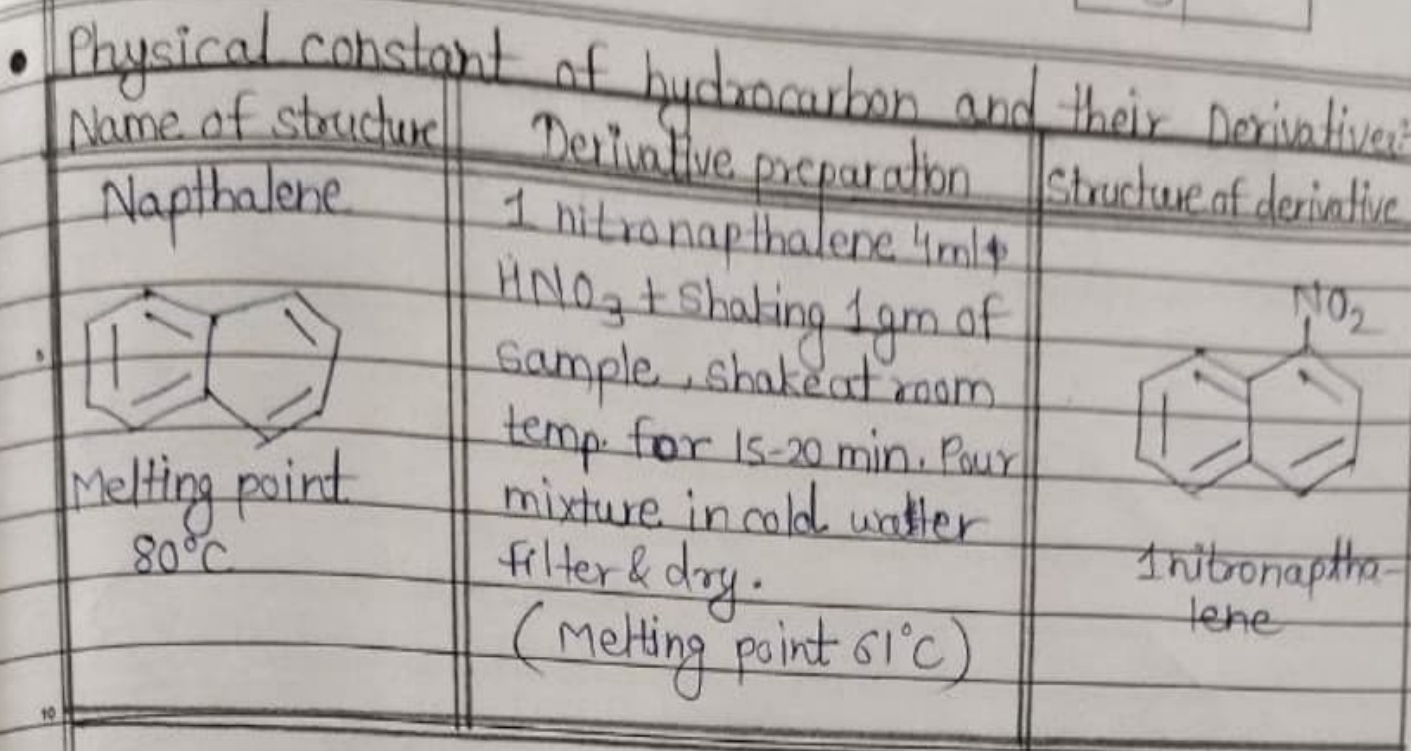 • Physical constant of hydrocarbon and their Derivatives:
Name of structure
Derivative preparation
Structure of derivative
Napthalene
Melting point
80°C
1 nitronapthalene 4ml+
HNO3 + Shaking 1gm of
sample, shake at room
temp. for 15-20 min. Pour
mixture in cold water
filter & dry.
(Melting point 61°C)
NO2
1 nitronaptha-
lene
10